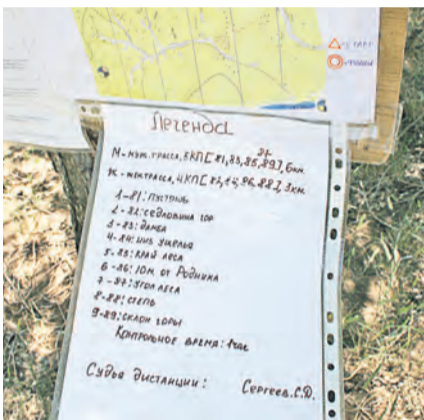 СТАРТ
Легенда
87
М-муж. трасса, 5КП[81,83,85,89], 6км.
Ж-жен трасса, 4КП[82,84,86,88], 3км.
1-81: пустошь
2-82: седловина гор
3-83: дамба
4-84: низ ущелья
5-85: край леса
6-86: 10м. от Родника
7-87: угол леса
8-88: степь
9-89: склон горы
Контрольное время: 1час
Судья дистанции: Сергеев.С.Д.